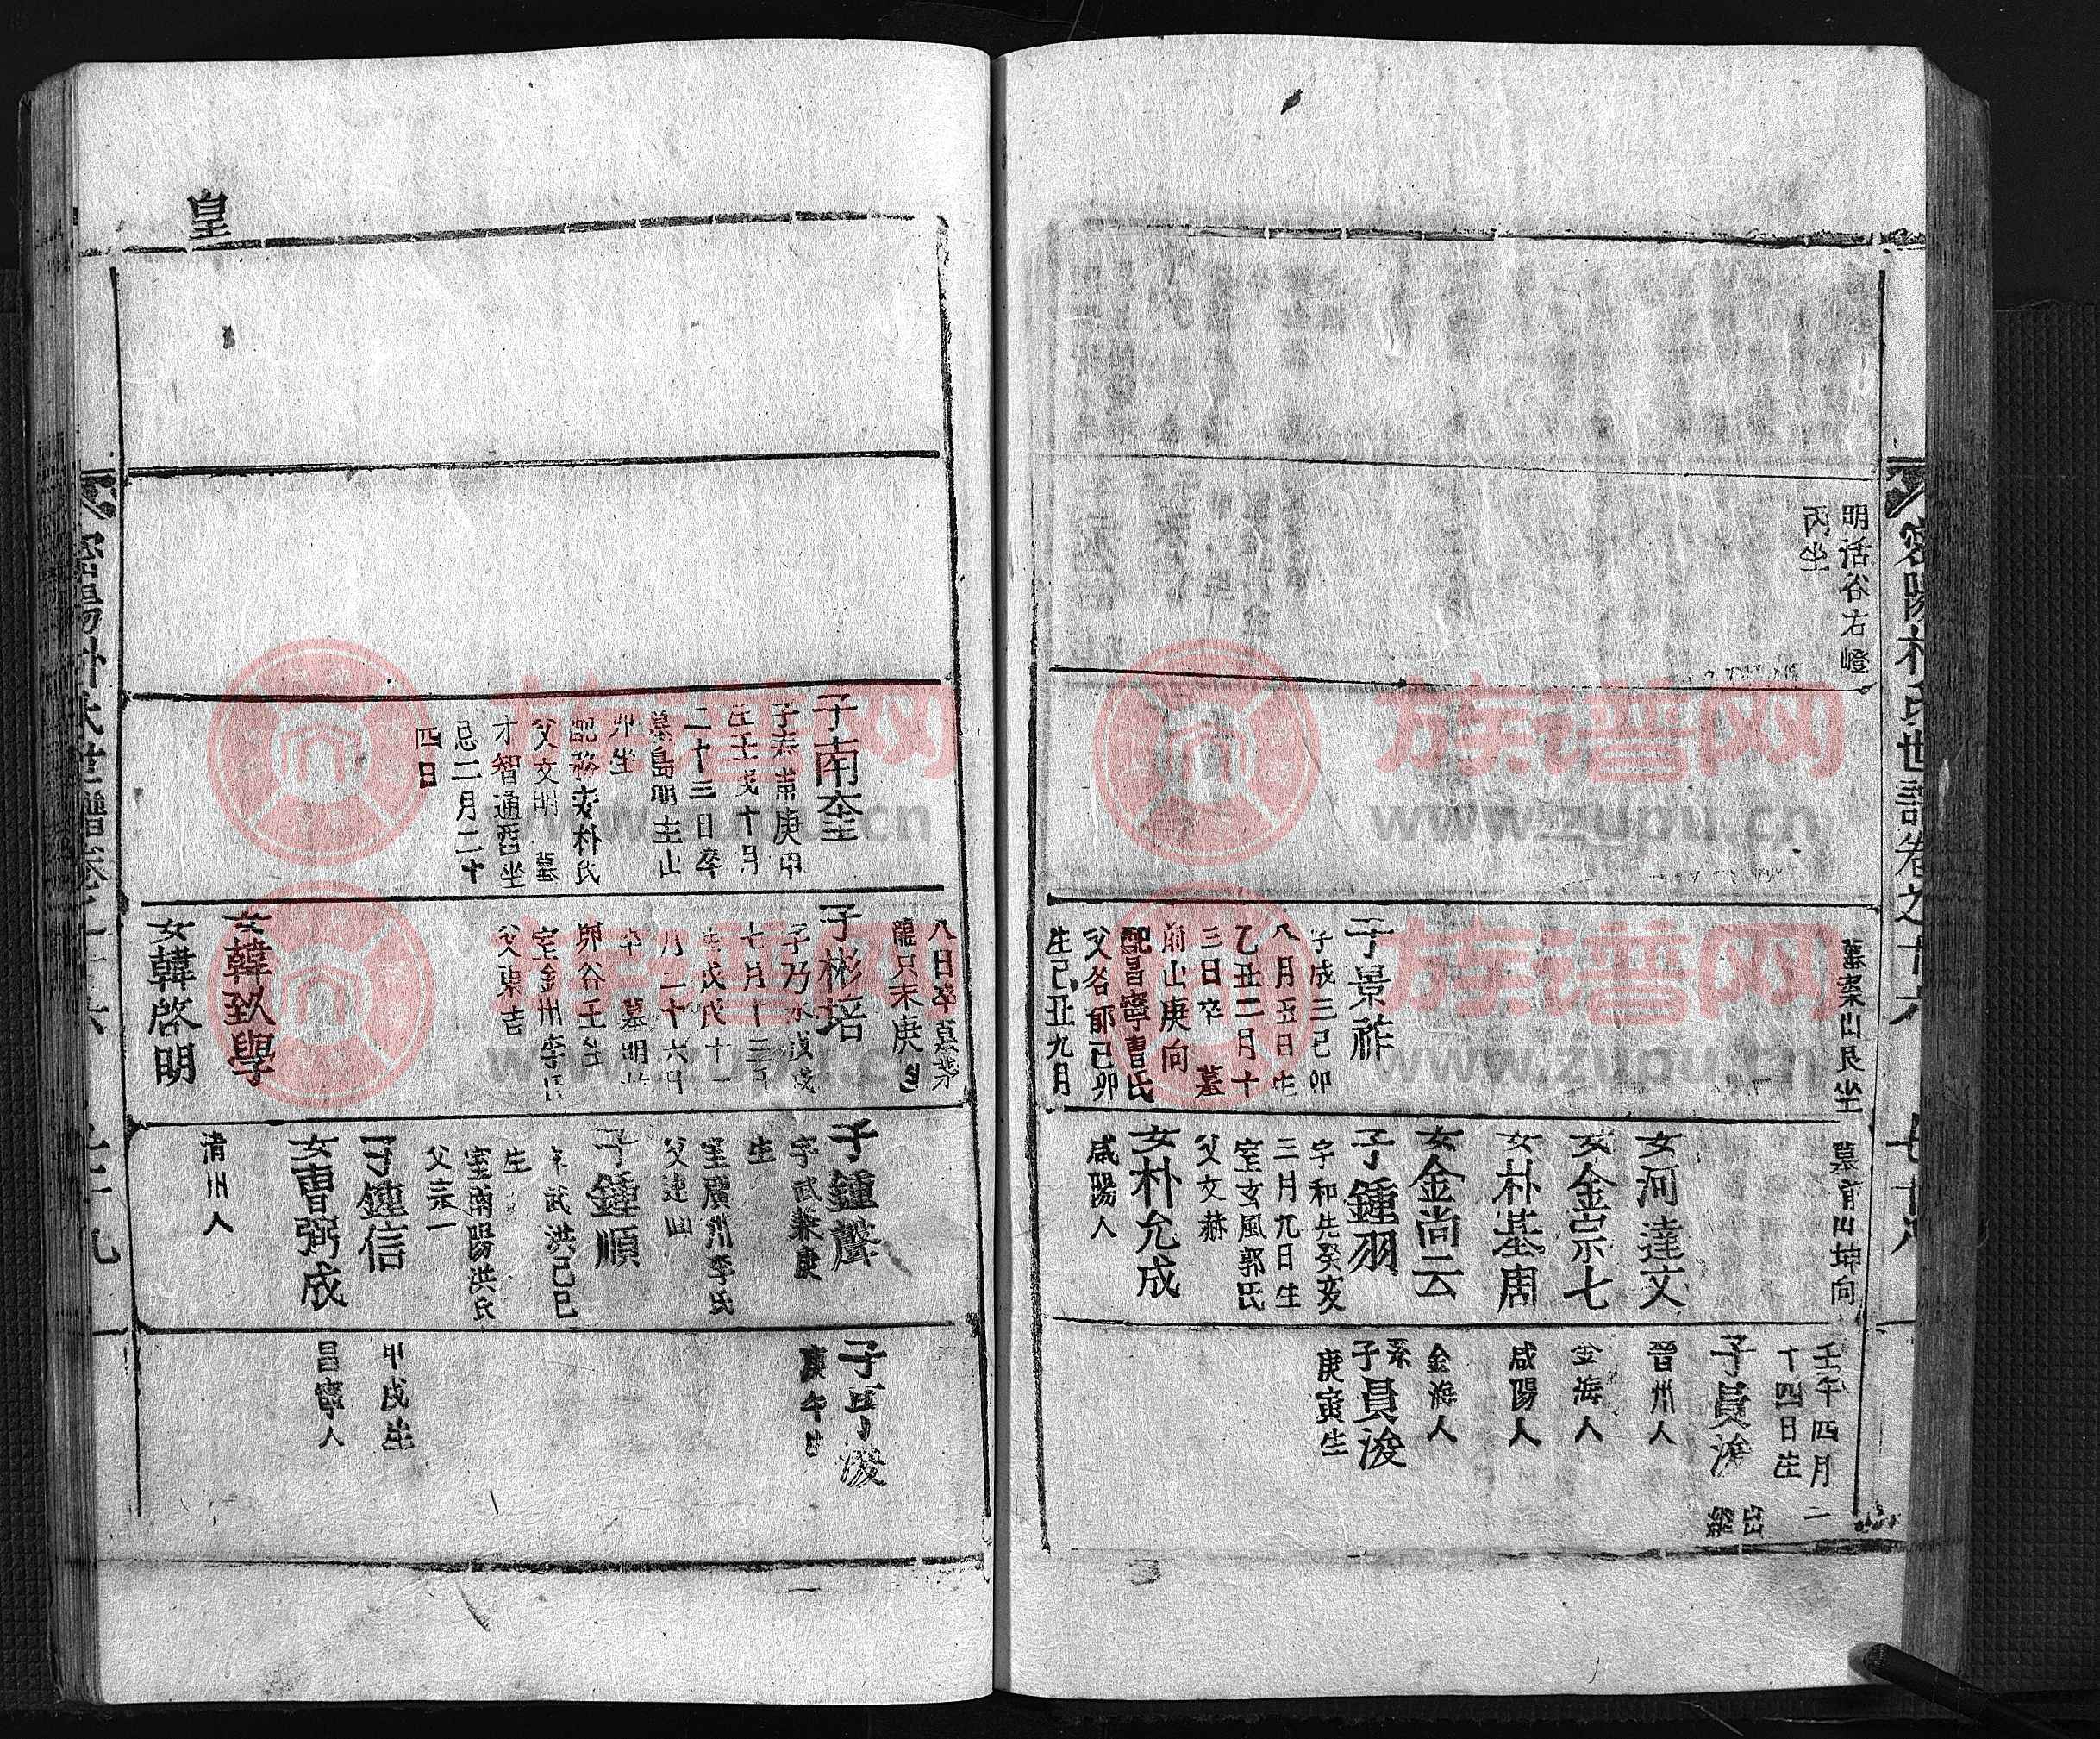 密陽朴氏世譜卷之十六
明活谷右嶝
丙坐
墓案山艮坐
子景祚
字成三己卯
八月五日生
乙丑二月十
三日卒 墓
前山庚向
配昌寧曺氏
父谷郁己卯
生己丑九月
墓前山坤向
女河達文
女金宗七
女朴基周
女金尚云
子鍾羽
字和先癸亥
三月九日生
室玄風郭氏
父文赫
女朴允成
咸陽人
壬午四月二
十四日生
子員浚
出
系
晉州人
金海人
咸陽人
金海人
系
子員浚
庚寅生
皇
子南奎
生壬戌十月
二十三日卒
墓島明主山
卯坐
配務安朴氏
父文明 墓
才智通酉坐
忌二月二十
四日
八日卒墓
龍只末庚
子彬培
七月十二日
戊戌十一
月二十六日
卒 墓明
卯谷壬坐
室金州李氏
父東吉
女韓致學
女韓啓明
子鍾聲
字武兼庚
生
室廣州李氏
父達
子鍾順
武洪己巳
生
室南陽洪氏
父宗一
子鍾信
女曺弼成
清州人
子
浚
庚午生
甲戌生
昌寧人
密陽朴氏世譜卷之十六
族谱网
www.zupu.cn
族谱网
www.zupu.cn
族谱网
www.zupu.cn
族谱网
www.zupu.cn